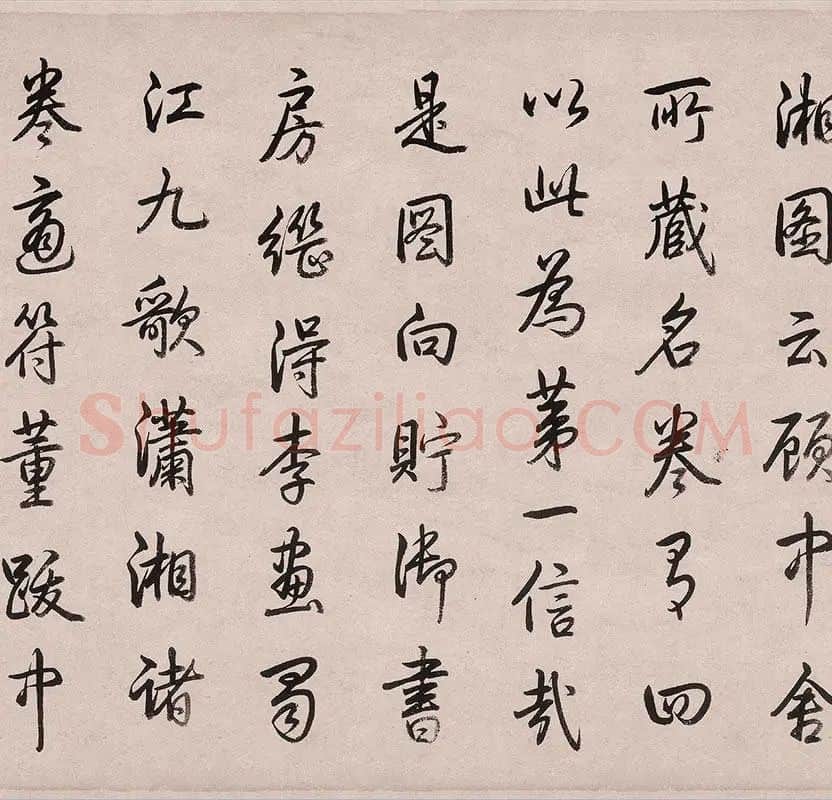 湘图云顾中舍
所藏名卷有四
以此为第一信哉
是图向贮御书
房继得李画蜀
江九歌潇湘诸
卷适符董跋中
Shufaziliao.COM